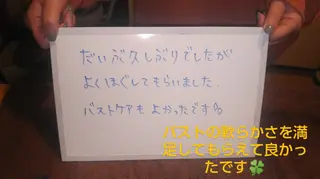 だいぶ久しぶりでしたが
よくほぐしてもらいました。
バストケアも よかったです
バストの軟らかさを満
足してもらえて良かっ
たです🍀